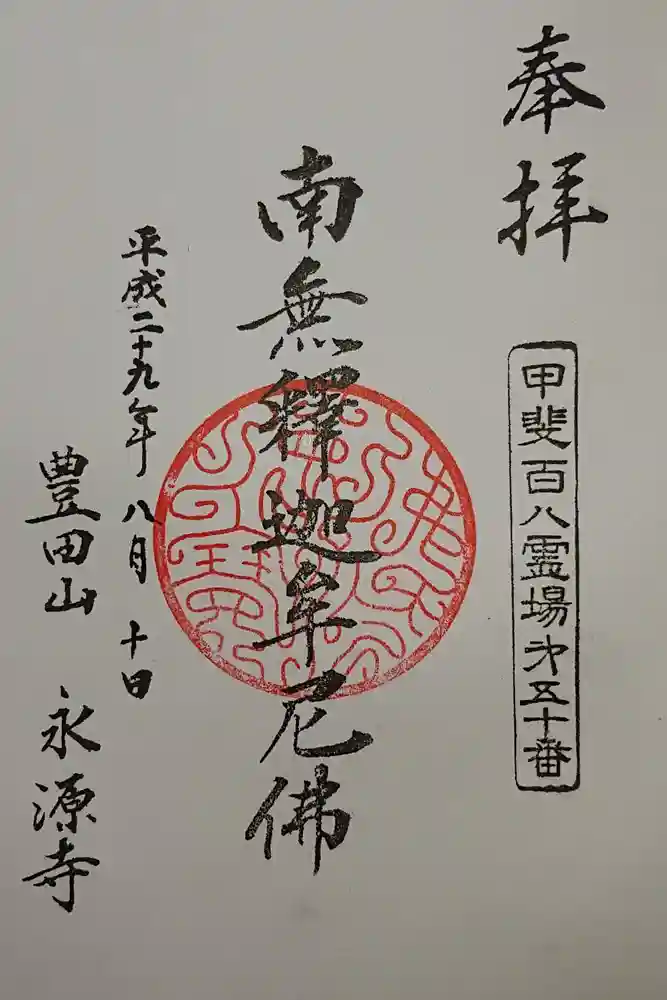 奉拝
甲斐百八霊場第五十番
南無釋迦牟尼佛
平成二十九年八月十日
豊田山 永源寺